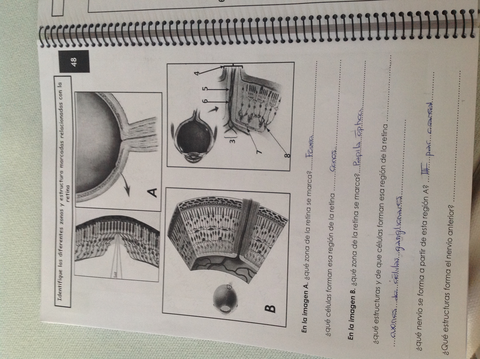 48
Identifique las diferentes zonas y estructura marcadas relacionadas con la retina
A
B
3
4
5
6
7
8
En la imagen A. ¿qué zona de la retina se marca? Fovea
¿qué células forman esa región de la retina conos
En la imagen B. ¿qué zona de la retina se marca? Papila óptica
¿qué estructuras y de que células forman esa región de la retina
axones de células ganglionares
¿qué nervio se forma a partir de esta región A? III par craneal
¿Qué estructuras forma el nervio anterior?